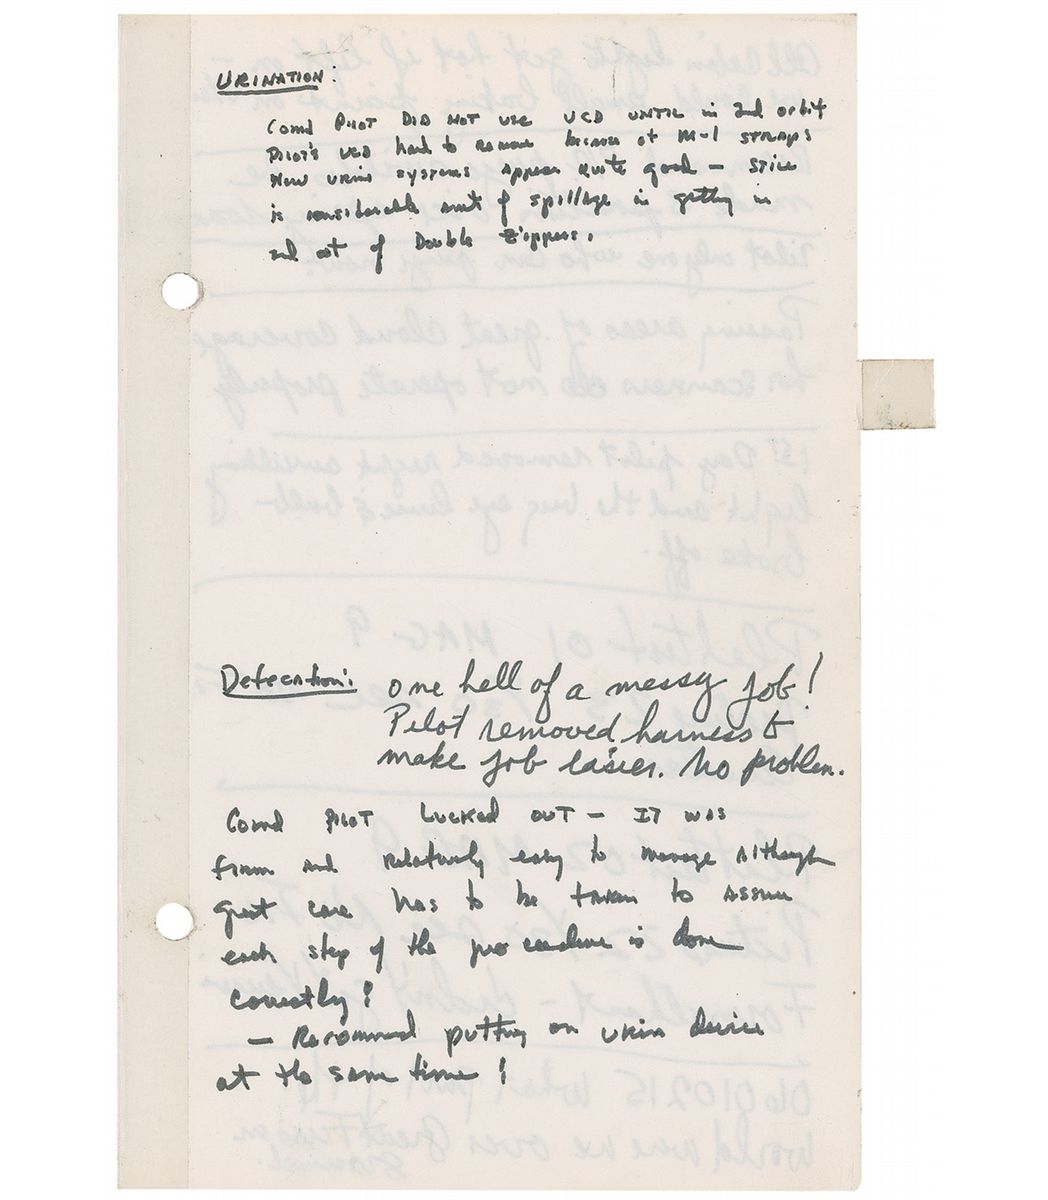 URINATION:
Comd PILOT DID NOT USE UCD UNTIL in 2nd orbit
PILOT'S UCD had to remove because of M-1 STRAPS
New urine systems appear quite good — STILL
is considerable amt of spillage in getting in
and out of Double Zippers.
Defecation: one hell of a messy job!
Pilot removed harness to
make job easier. No problem.
Comd PILOT LUCKED OUT — IT WAS
firm and relatively easy to manage although
great care has to be taken to assure
each step of the procedure is done
correctly!
— Recommend putting on urine device
at the same time!